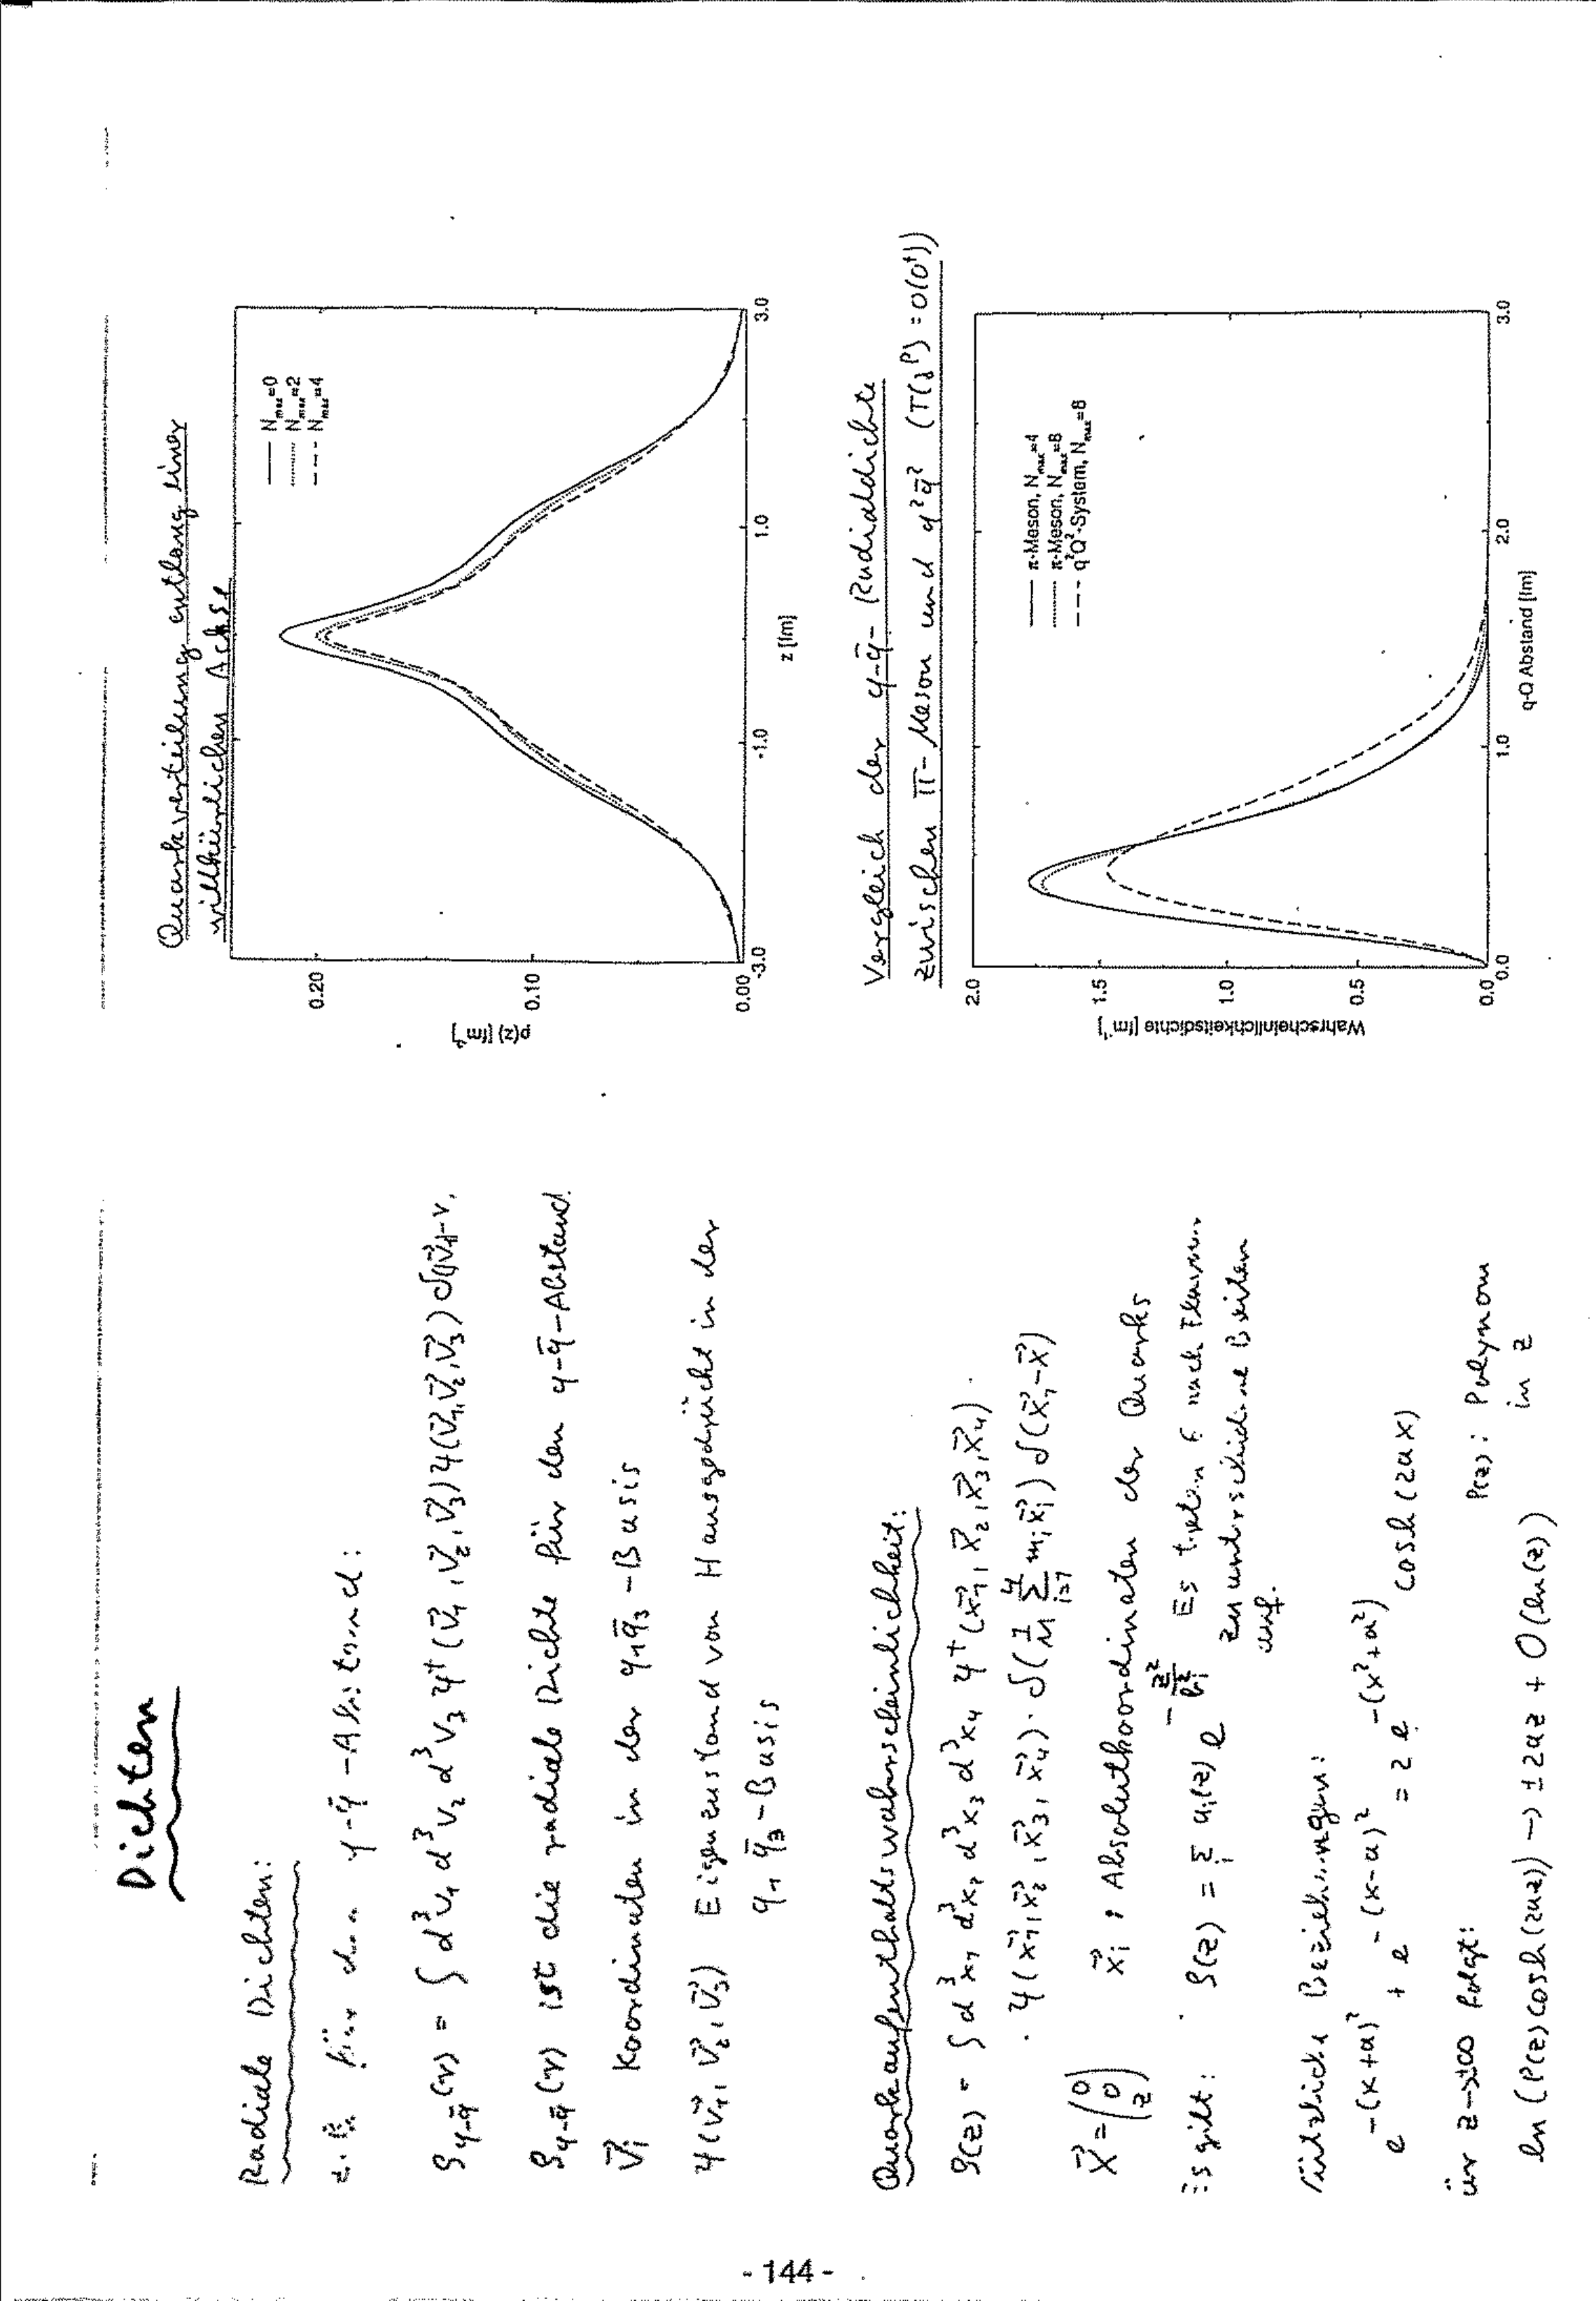 Dichten
Radiale Dichten:
z.B. für den q-q̄-Abstand:
ρ_{q-q̄}(r) = ∫ d³v₁ d³v₂ d³v₃ ψ⁺(v⃗₁, v⃗₂, v⃗₃) ψ(v⃗₁, v⃗₂, v⃗₃) δ(|v⃗₁|-r
ρ_{q-q̄}(r) ist die radiale Dichte für den q-q̄-Abstand.
v⃗ᵢ Koordinaten in der q₁q̄₃-Basis
ψ(v⃗₁, v⃗₂, v⃗₃) Eigenzustand von H ausgedrückt in der
q₁q̄₃-Basis
Quarkaufenthaltswahrscheinlichkeit:
ρ(z) = ∫ d³x₁ d³x₂ d³x₃ d³x₄ ψ⁺(x⃗₁, x⃗₂, x⃗₃, x⃗₄) ·
· ψ(x⃗₁, x⃗₂, x⃗₃, x⃗₄) · δ(1/M ∑_{i=1}^{4} mᵢx⃗ᵢ) δ(x⃗₁-x⃗)
x⃗ = (0 0 z) x⃗ᵢ : Absolutkoordinaten der Quarks
Es gilt: ρ(z) = ∑ᵢ aᵢ(z) e^{-z²/bᵢ²} Es treten 6
zu unterschiedliche Breiten
auf.
Nützliche Beziehungen:
e^{-(x+a)²} + e^{-(x-a)²} = 2 e^{-(x²+a²)} cosh(2ax)
ür z→±∞ folgt: P(z): Polynom
in z
ln(P(z) cosh(2az)) → ±2az + O(ln(z))
Quarkverteilung entlang einer
willkürlichen Achse
N_max=0
N_max=2
N_max=4
0.20
0.10
0.00
-3.0
-1.0
1.0
3.0
z [fm]
Vergleich der q-q̄-Radialdichte
zwischen π-Meson und q²q̄² (T(J^P)=0(0⁺))
π-Meson, N_max=4
π-Meson, N_max=8
q²Q²-System, N_max=8
Wahrscheinlichkeitsdichte [fm⁻¹]
2.0
1.5
1.0
0.5
0.0
0.0
1.0
2.0
3.0
q-Q Abstand [fm]
- 144 -